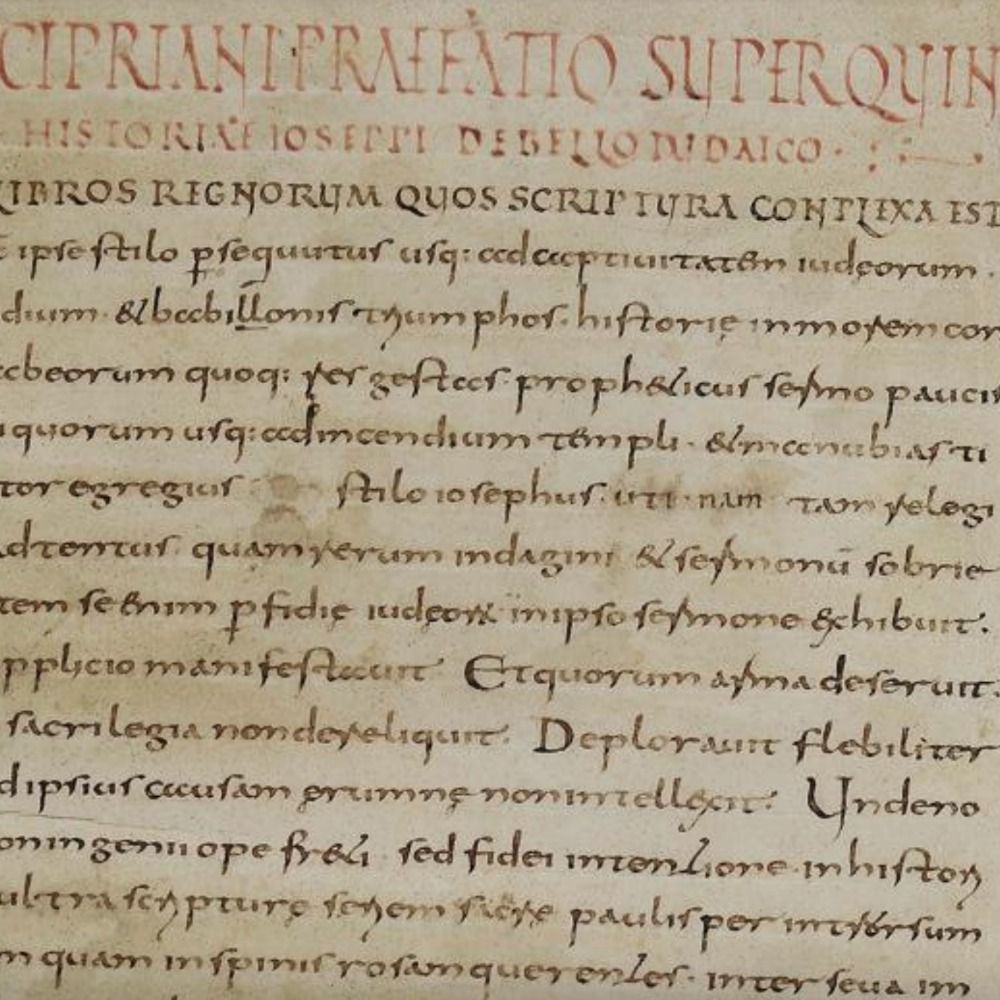 CIPRIANI PRAEFATIO SUPER QUIN
HISTORIAE IOSEPPI DE BELLO IUDAICO
LIBROS REGNORUM QUOS SCRIPTURA CONPLEXA EST
ipse stilo p̱sequutus usq: ad captiuitatem iudęorum ·
dium · & babillonis tryumphos · historię in morem con
beorum quoq: res gestas prophęticus sermo paucis
quorum usq: ad incendium templi · & manubias ti
tor egregius stilo iosephus · uti nam tam relegi
adtentus quam rerum indagini & sermonū sobrie
tem se enim p̱fidię iudęoꝝ in ipso sermone exhibuit.
pplicio manifestauit Et quorum arma deseruit.
sacrilegia non dereliquit. Deplorauit flebiliter
d ipsius causam ęrumnę non intellexit. Unde no
on ingenii ope freti sed fidei intentione in histori
ultra scripturę seriem sacrę paulisper introrsum
m quam in spinis rosam querentes · inter seua im